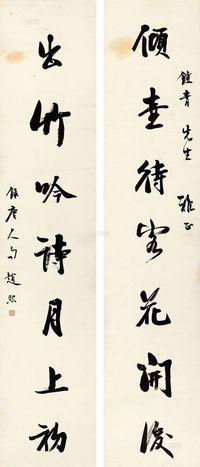 青先生雅正
傾壺待客花開後
出竹吟詩月上初
録唐人句趙熙